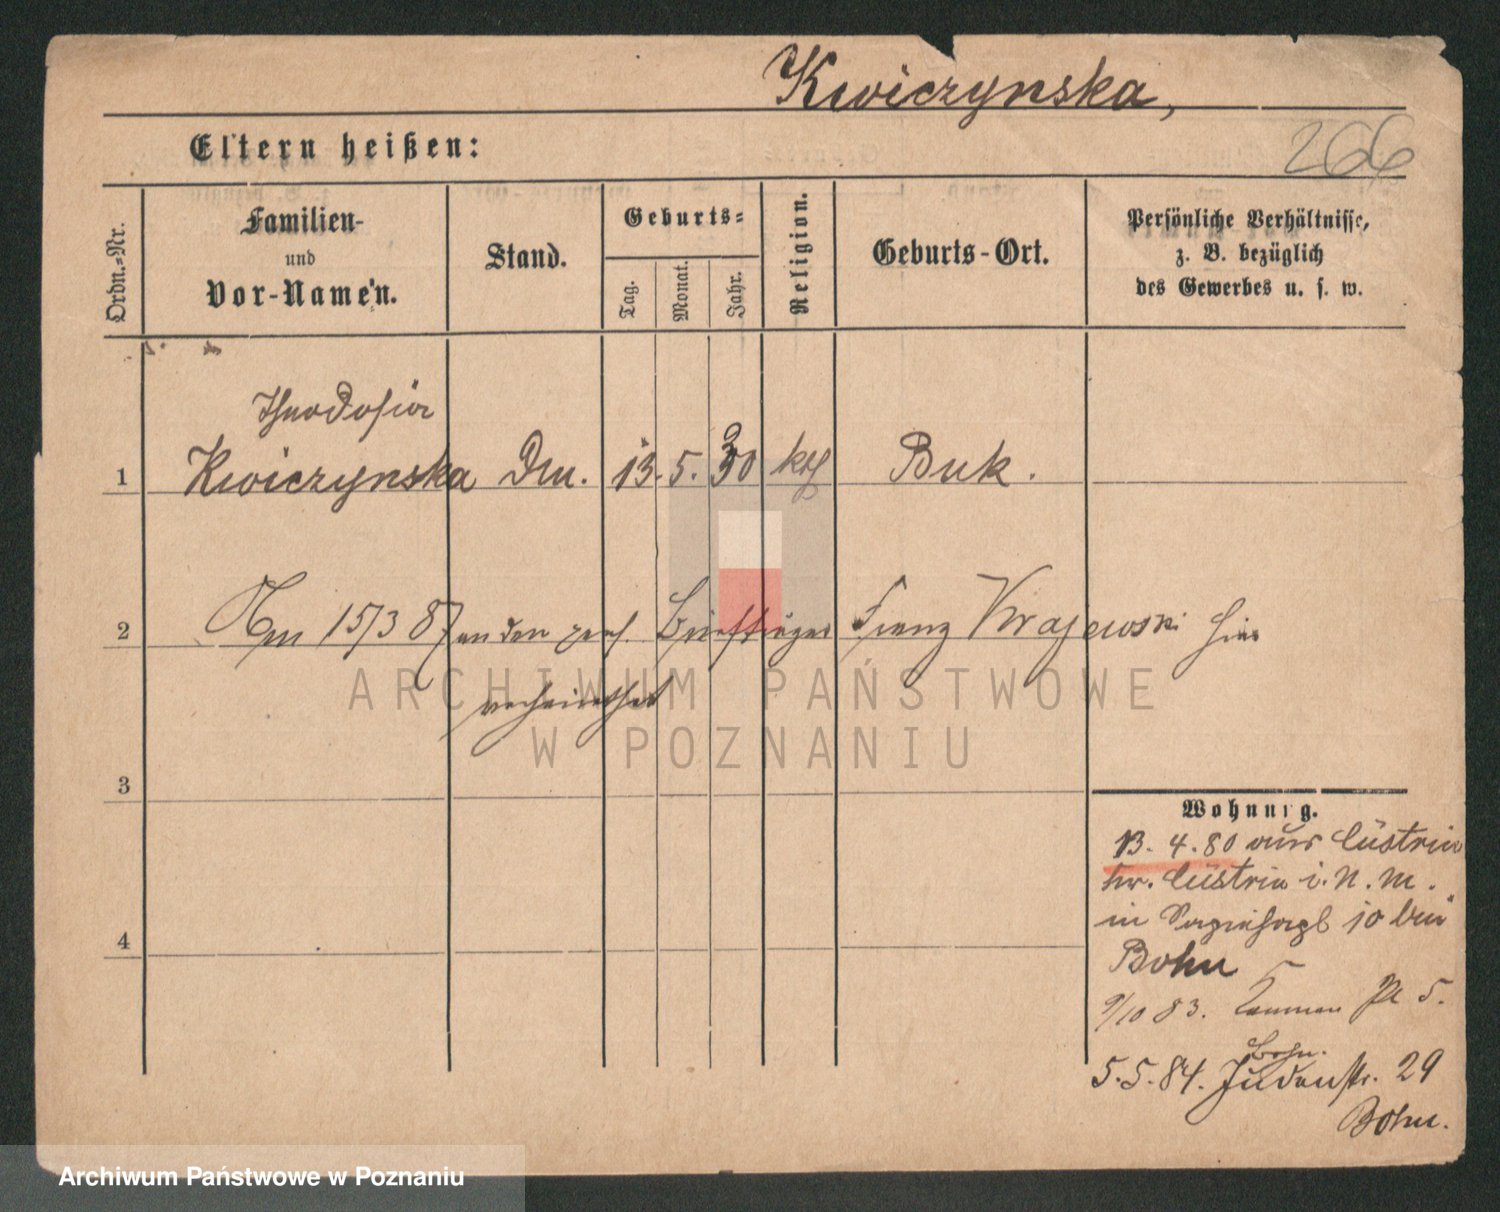 Kwiczynska,
266
Eltern heißen:
Ordn.-Nr.
Familien-
und
Vor-Namen.
Stand.
Geburts-
Tag.
Monat.
Jahr.
Religion.
Geburts-Ort.
Persönliche Verhältnisse,
z. B. bezüglich
des Gewerbes u. s. w.
Theodosia
1 Kwiczynska 13. 5. 30 kth Buk.
2 Am 15/3 87 an den Briefträger Franz Krajewski hier
verheirathet
ARCHIWUM PAŃSTWOWE
W POZNANIU
3
Wohnung.
13. 4. 80 aus Cüstrin
Cüstrin i. N. M.
in 10 bei
4
Bohn
9/10 83. Pl 5.
Bohn.
5.5.84. Judenstr. 29
Bohn.
Archiwum Państwowe w Poznaniu